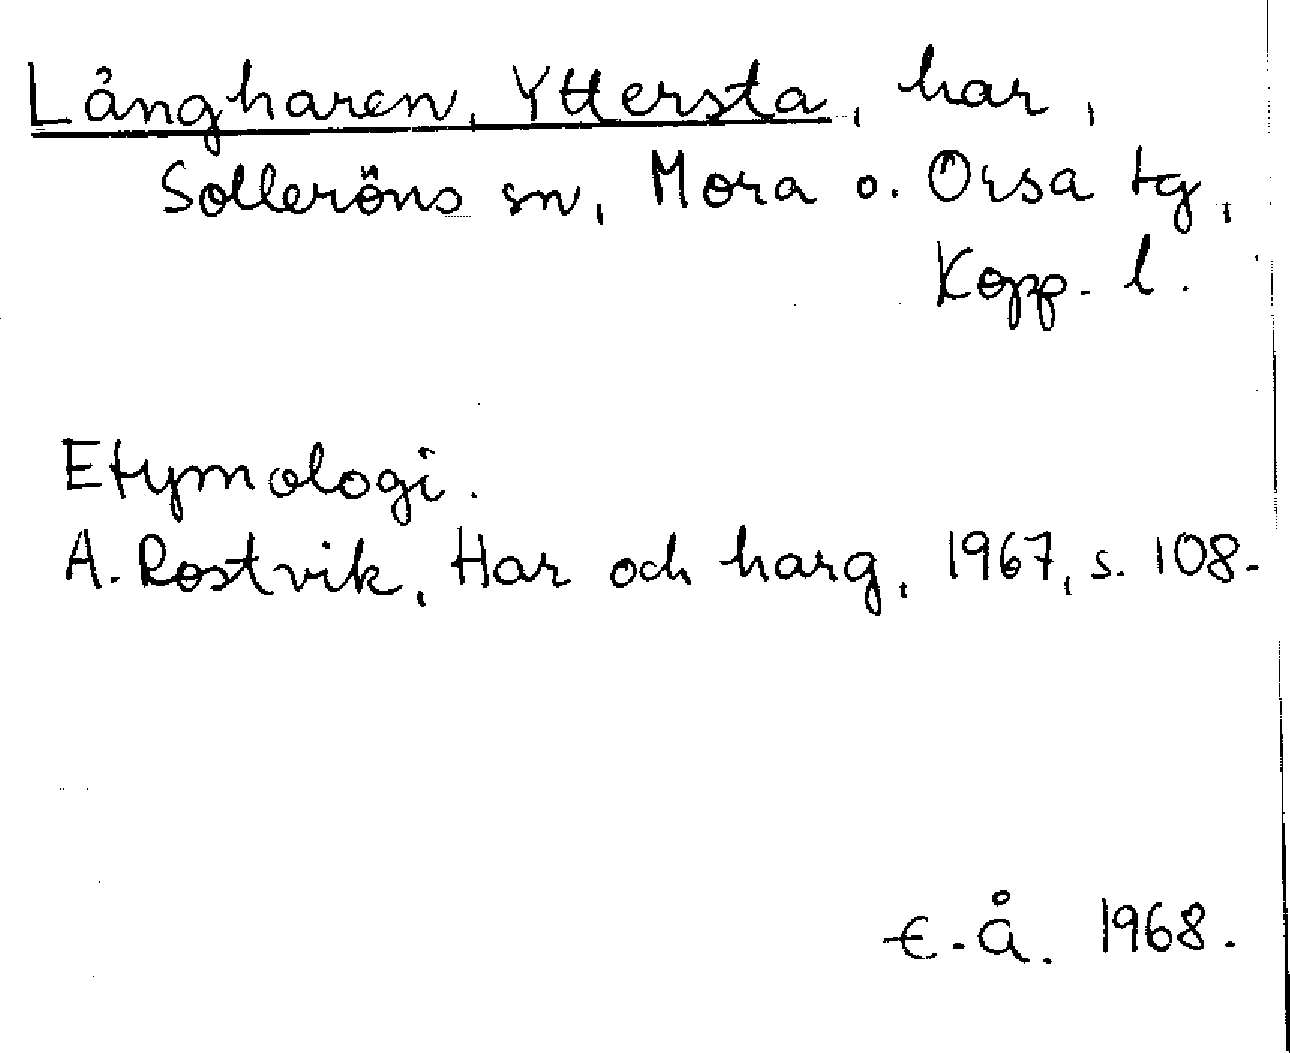 Långharen, Yttersta, har,
Solleröns sn, Mora o. Orsa tg,
Kopp. l.
Etymologi.
A. Rostvik, Har och harg, 1967, s. 108.
E.Å. 1968.